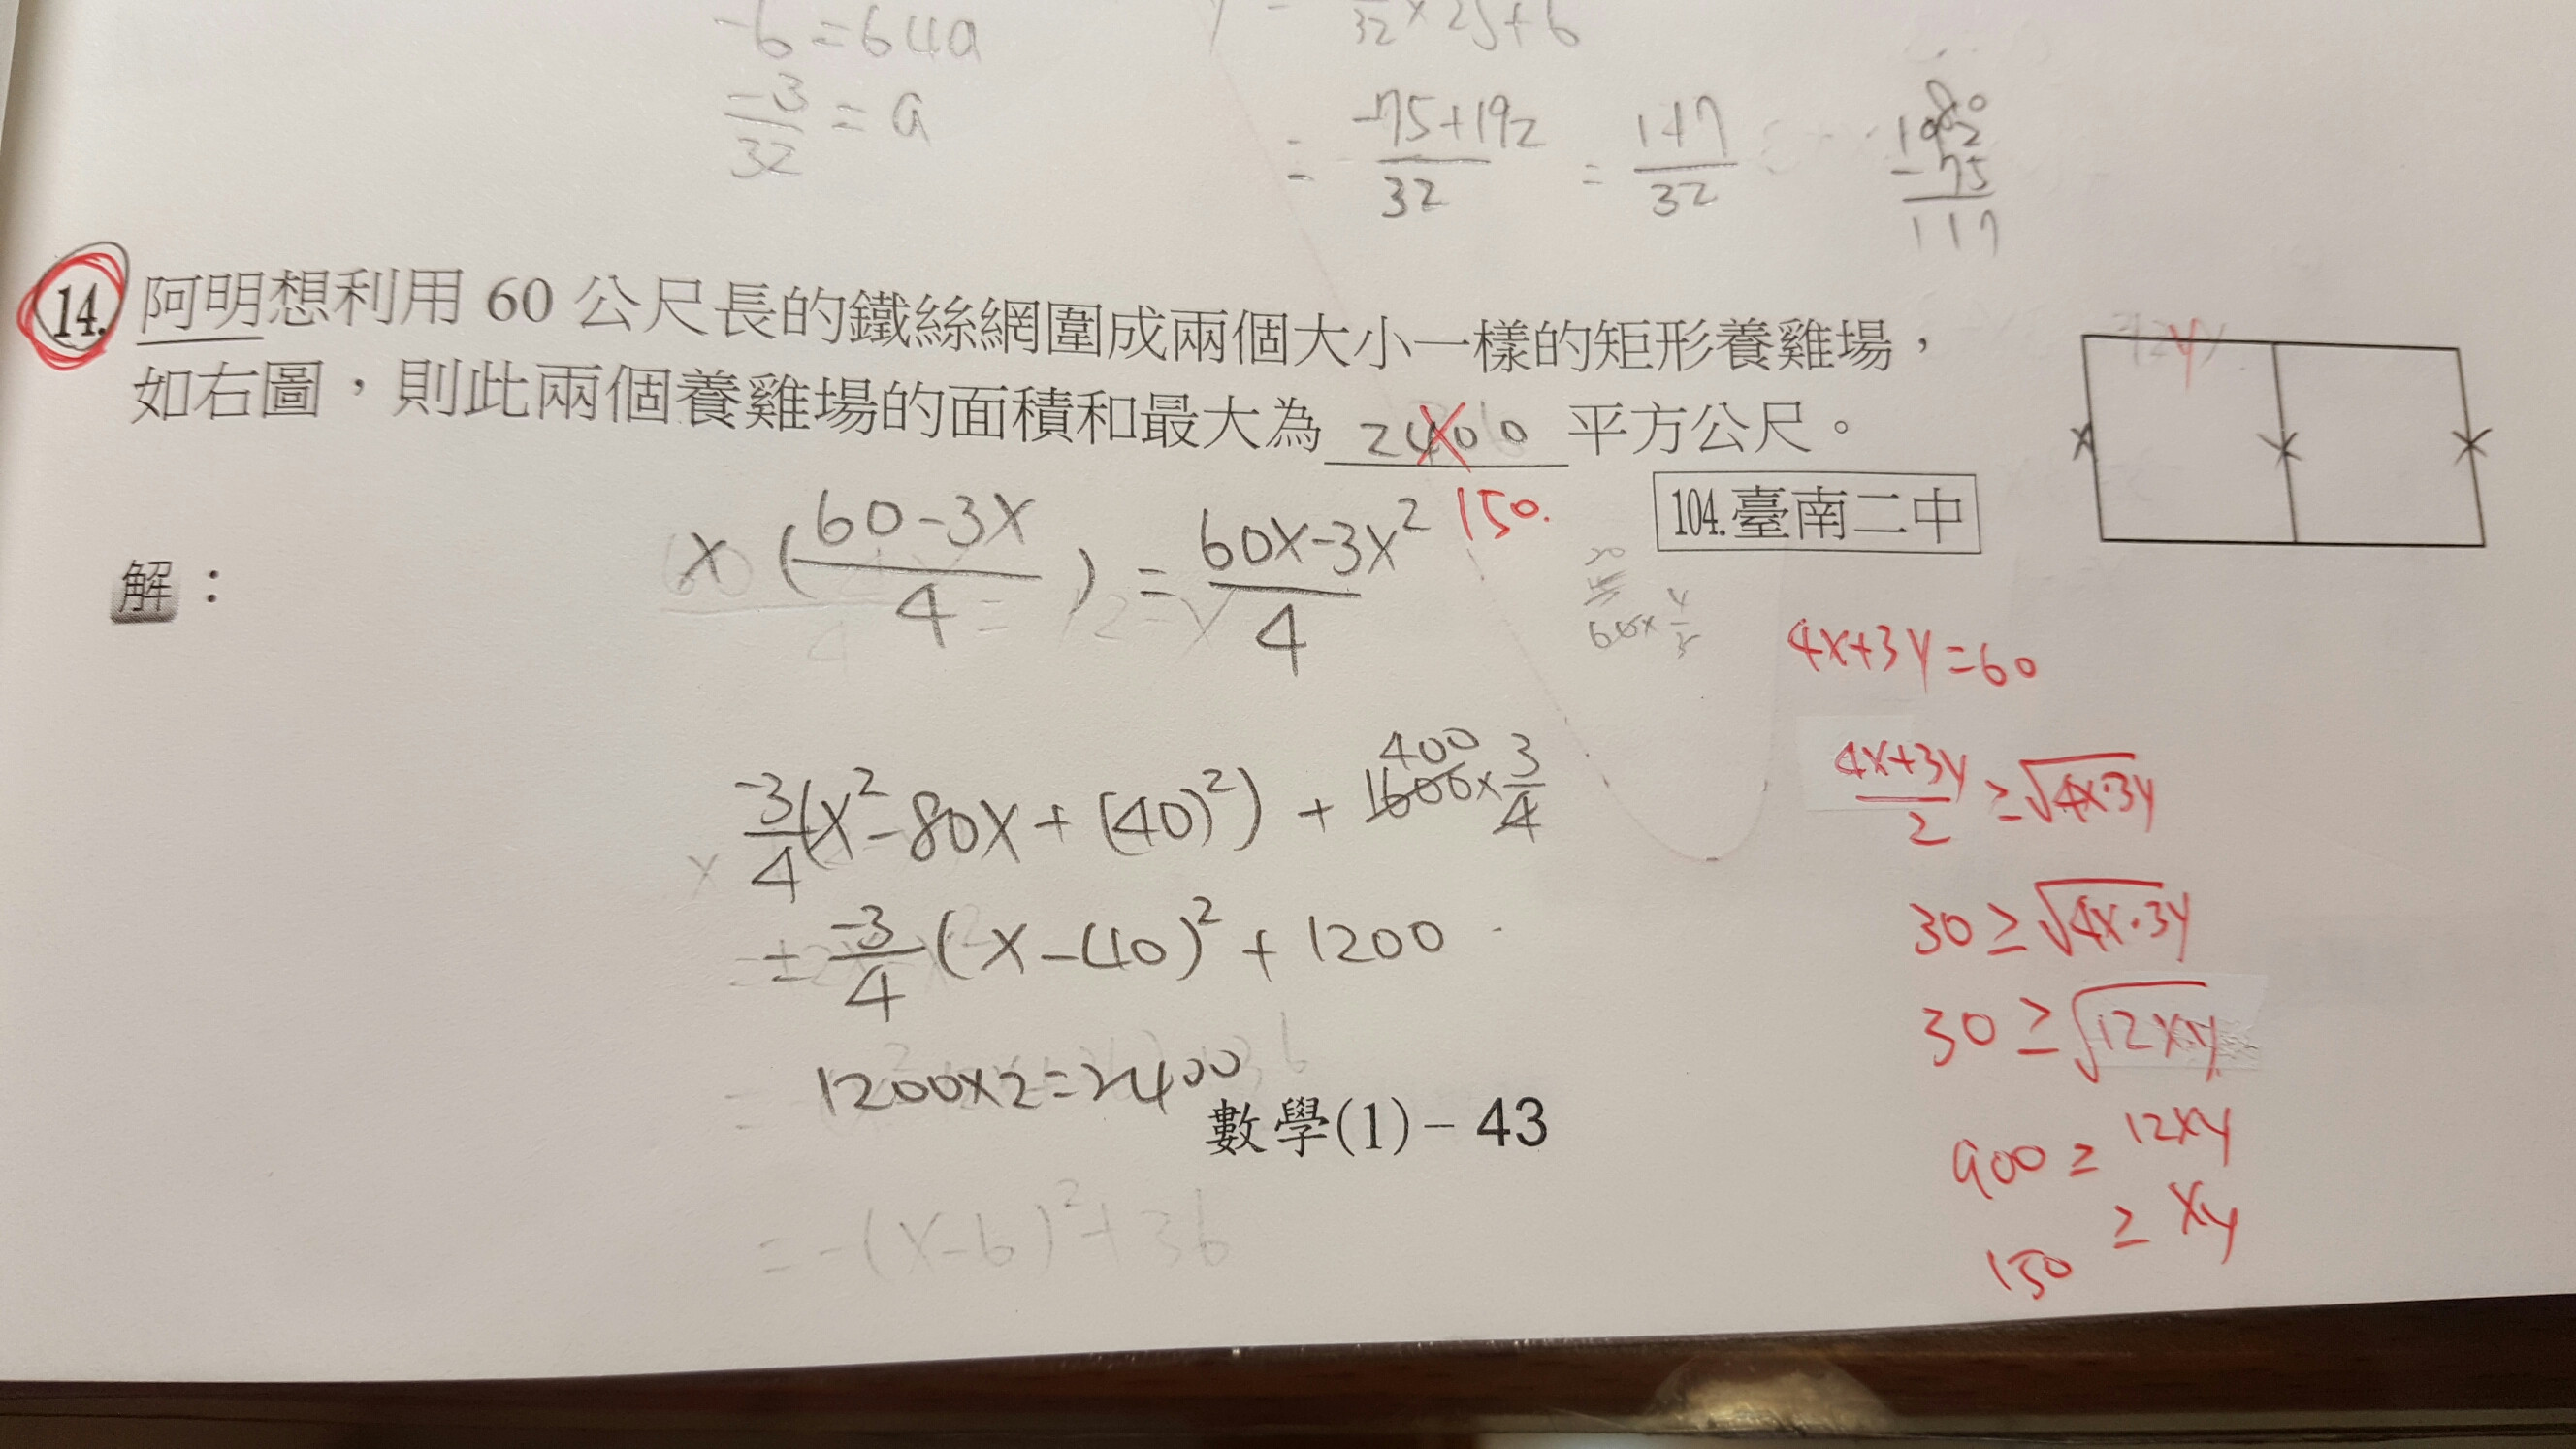 -6=64a
32×25+6
-3/32 = a
= -75+192/32 = 117/32
192
-75
117
14. 阿明想利用 60 公尺長的鐵絲網圍成兩個大小一樣的矩形養雞場，
如右圖，則此兩個養雞場的面積和最大為 2400 平方公尺。
150.
104.臺南二中
x x x
解：
x(60-3x/4) = 60x-3x²/4
4x+3y=60
-3/4(x²-80x+(40)²) + 1600×3/4
400
4x+3y/2 ≥ √4x·3y
= -3/4(x-40)²+1200
30 ≥ √4x·3y
30 ≥ √12xy
1200×2=2400
數學(1)－43
900 ≥ 12xy
150 ≥ xy
= -(x-6)²+36